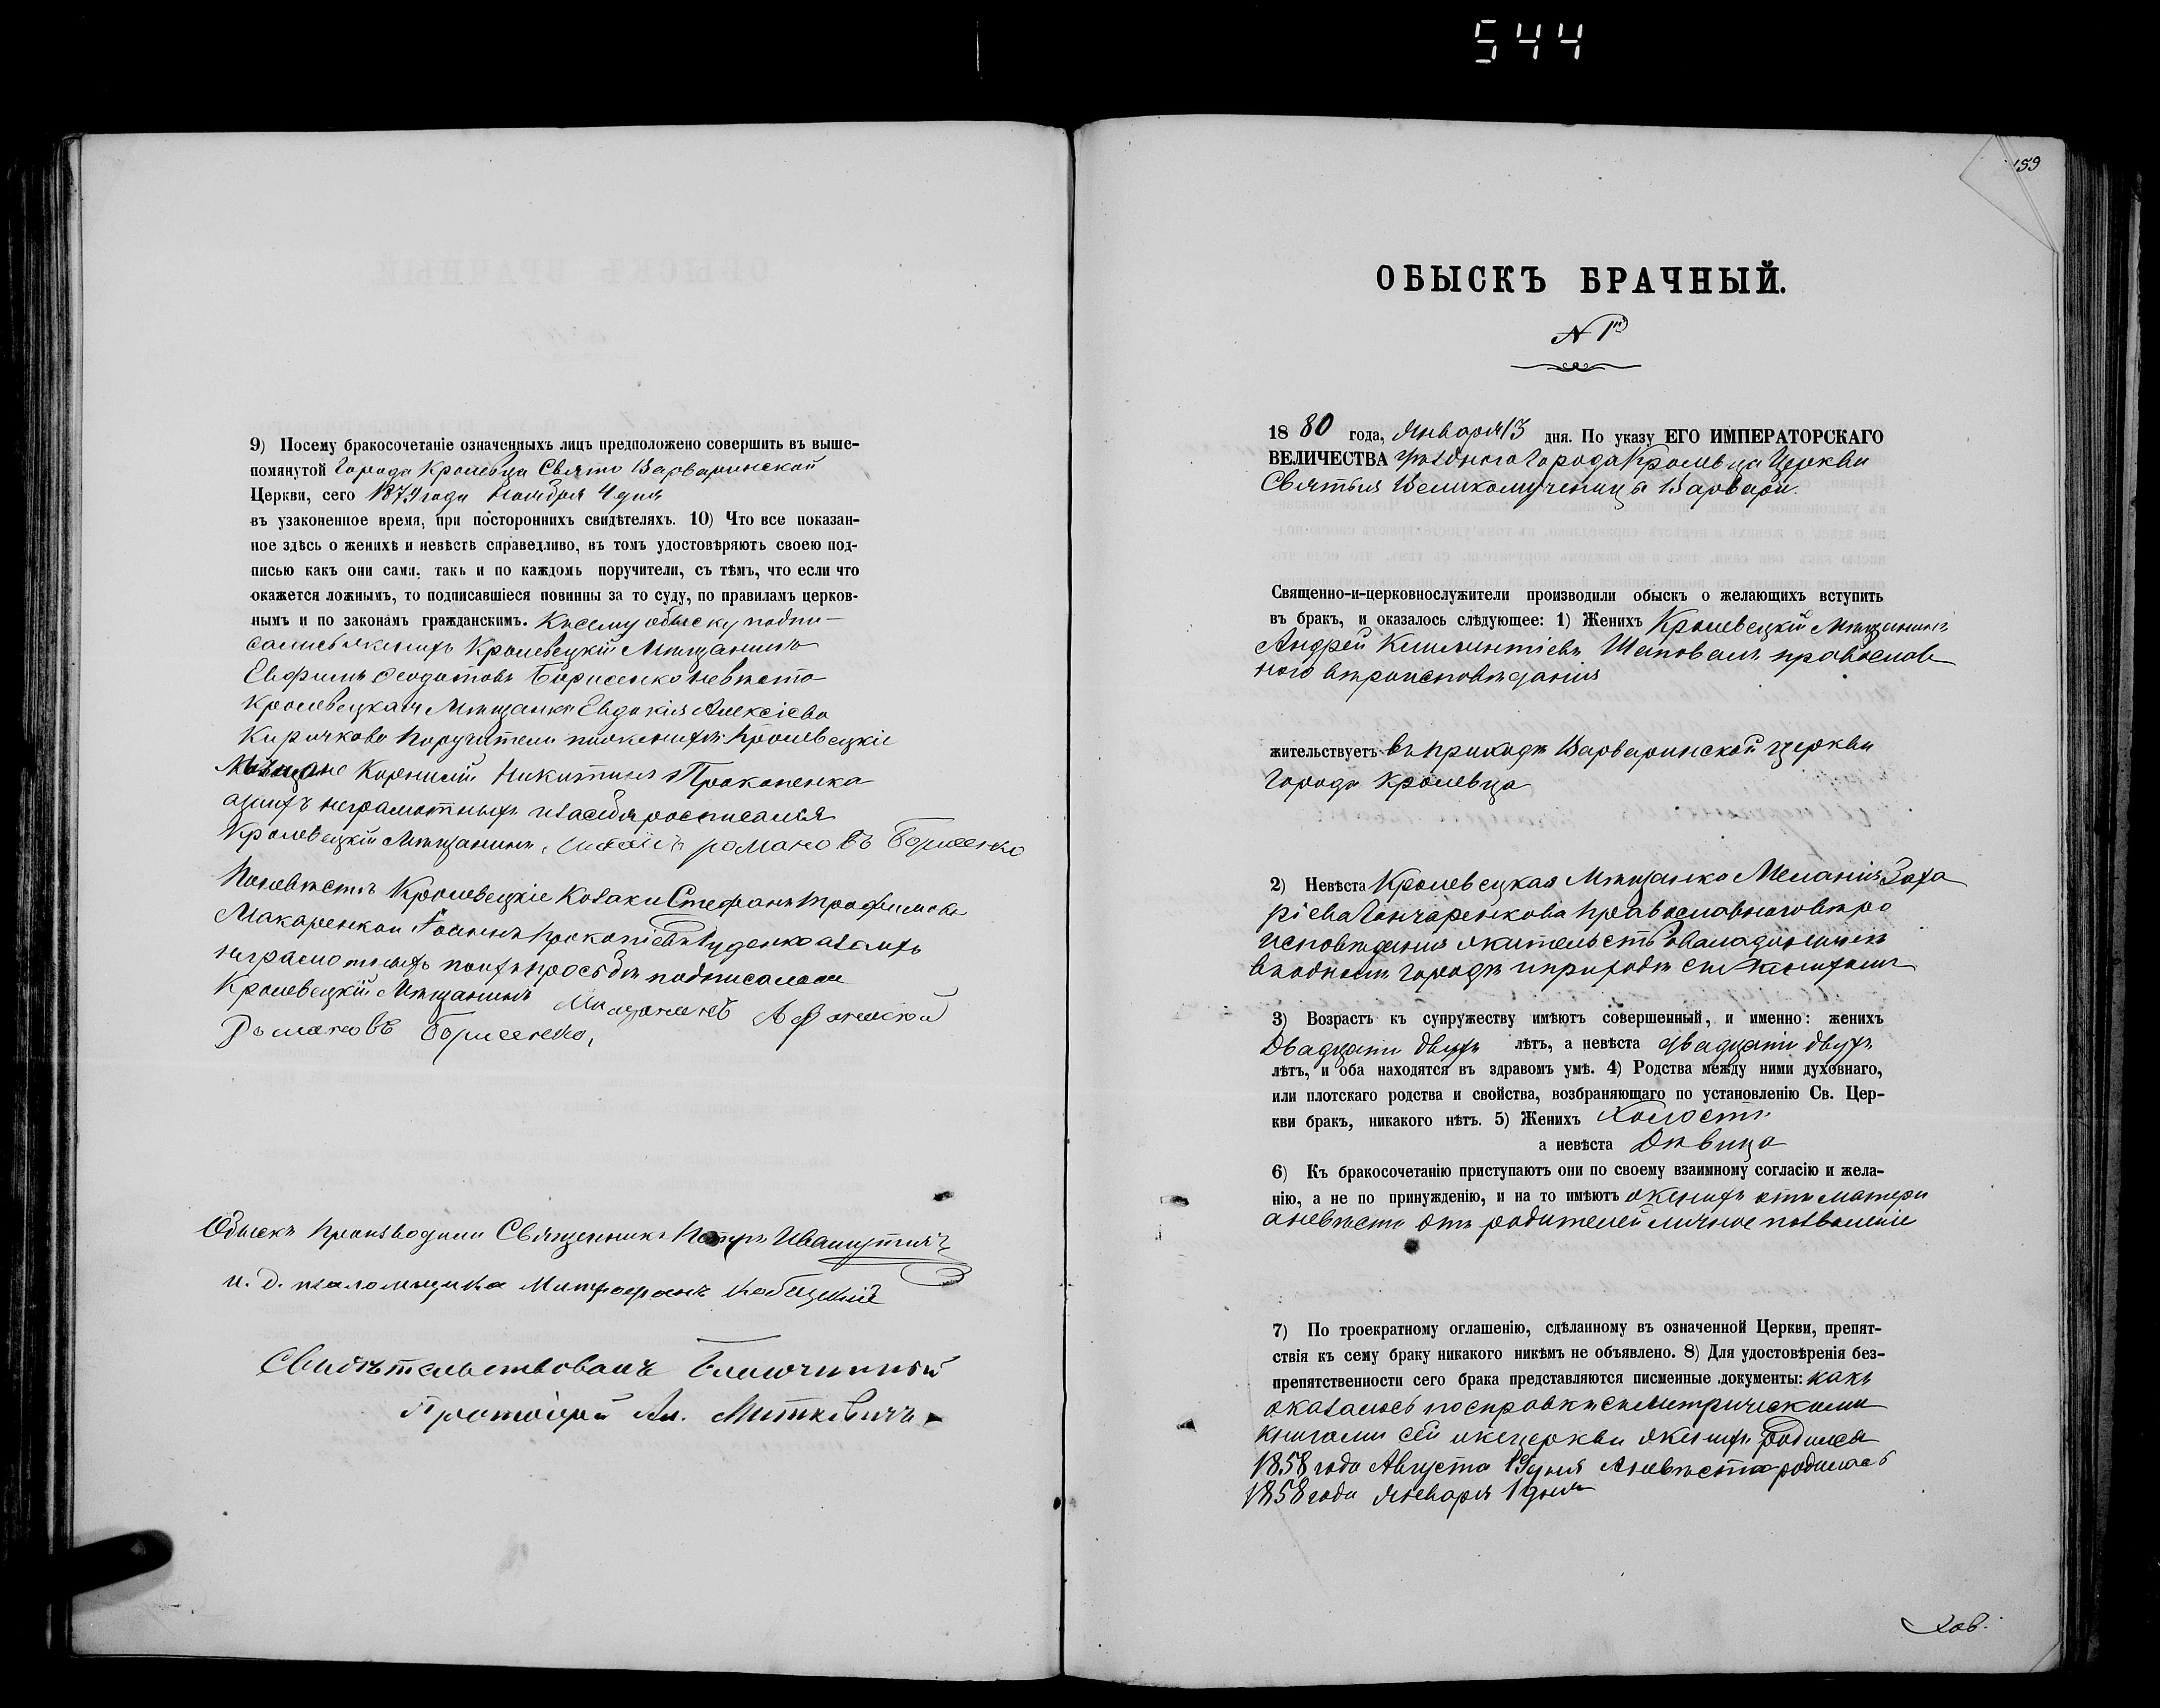 544
9) Посему бракосочетаніе означенныхъ лицъ предположено совершить въ выше-
помянутой Города Кролевца Свято Варваринской
Церкви, сего 1879 года Ноября 4 дня
въ узаконенное время, при постороннихъ свидѣтеляхъ. 10) Что все показан-
ное здѣсь о женихѣ и невѣстѣ справедливо, въ томъ удостовѣряютъ своею под-
писью какъ они сами, такъ и по каждомъ поручители, съ тѣмъ, что если что
окажется ложнымъ, то подписавшіеся повинны за то суду, по правиламъ церков-
нымъ и по законамъ гражданскимъ. Ксему обыску подпи-
сались женихъ Кролевецкій Мѣщанинъ
Евфимъ Феодотовъ Борисенко невѣста
Кролевецкая Мѣщанка Евдокія Алексіева
Киричкова Поручители по женихѣ: Кролевецкіе
Мѣщане Корнилій Никитинъ Прокопенка
азаихъ неграмотныхъ и за себя росписался
Кролевецкій Мѣщанинъ, романовъ Борисенко
По невѣстѣ Кролевецкіе Козаки Стефанъ Трофимовъ
Макаренко и Іоаннъ Прокопіевъ Руденко а за ихъ
неграмотныхъ по ихъ просьбѣ подписался
Кролевецкій Мѣщанинъ Мещанинъ Афанасий
Романовъ Борисенко,
Обыскъ Производили Священникъ Петръ Ивашутичъ
и. д. псаломщика Митрофанъ
Свидѣтельствовалъ Благочинный
Протоіерей Ал. Миткевичъ
159
ОБЫСКЪ БРАЧНЫЙ.
N 1й
18 80 года, Января 13 дня. По указу ЕГО ИМПЕРАТОРСКАГО
ВЕЛИЧЕСТВА уѣздного Города Кролевца Церкви
Святыя Великомученицы Варвары.
Священно-и-церковнослужители производили обыскъ о желающихъ вступить
въ бракъ, и оказалось слѣдующее: 1) Женихъ Кролевецкій Мѣщанинъ
Андрей Климентіевъ Шаповалъ православ
ного вѣроисповѣданія
жительствуетъ въ приходѣ Варваринской церкви
Города Кролевца
2) Невѣста Кролевецкая Мѣщанка Меланія Заха
ріева Гончаренкова Православного вѣро
исповѣданія жительствовала донынѣ
в водномъ городѣ и приходѣ съ женихомъ
3) Возрастъ къ супружеству имѣютъ совершенный, и именно: женихъ
Двадцати двухъ лѣтъ, а невѣста двадцати двухъ
лѣтъ, и оба находятся въ здравомъ умѣ. 4) Родства между ними духовнаго,
или плотскаго родства и свойства, возбраняющаго по установленію Св. Цер-
кви бракъ, никакого нѣтъ. 5) Женихъ Холостъ
а невѣста Дѣвица
6) Къ бракосочетанію приступаютъ они по своему взаимному согласію и жела-
нію, а не по принужденію, и на то имѣютъ женихъ отъ матери
а невѣста отъ родителей личное позволеніе
7) По троекратному оглашенію, сдѣланному въ означенной Церкви, препят-
ствія къ сему браку никакого никѣмъ не объявлено. 8) Для удостовѣренія без-
препятственности сего брака представляются писменные документы: какъ
оказалось по справкѣ съ Метрическими
книгами сей же церкви женихъ родился
1858 года Августа 19 дня А невѣста родилась
1858 года Января 1 дня